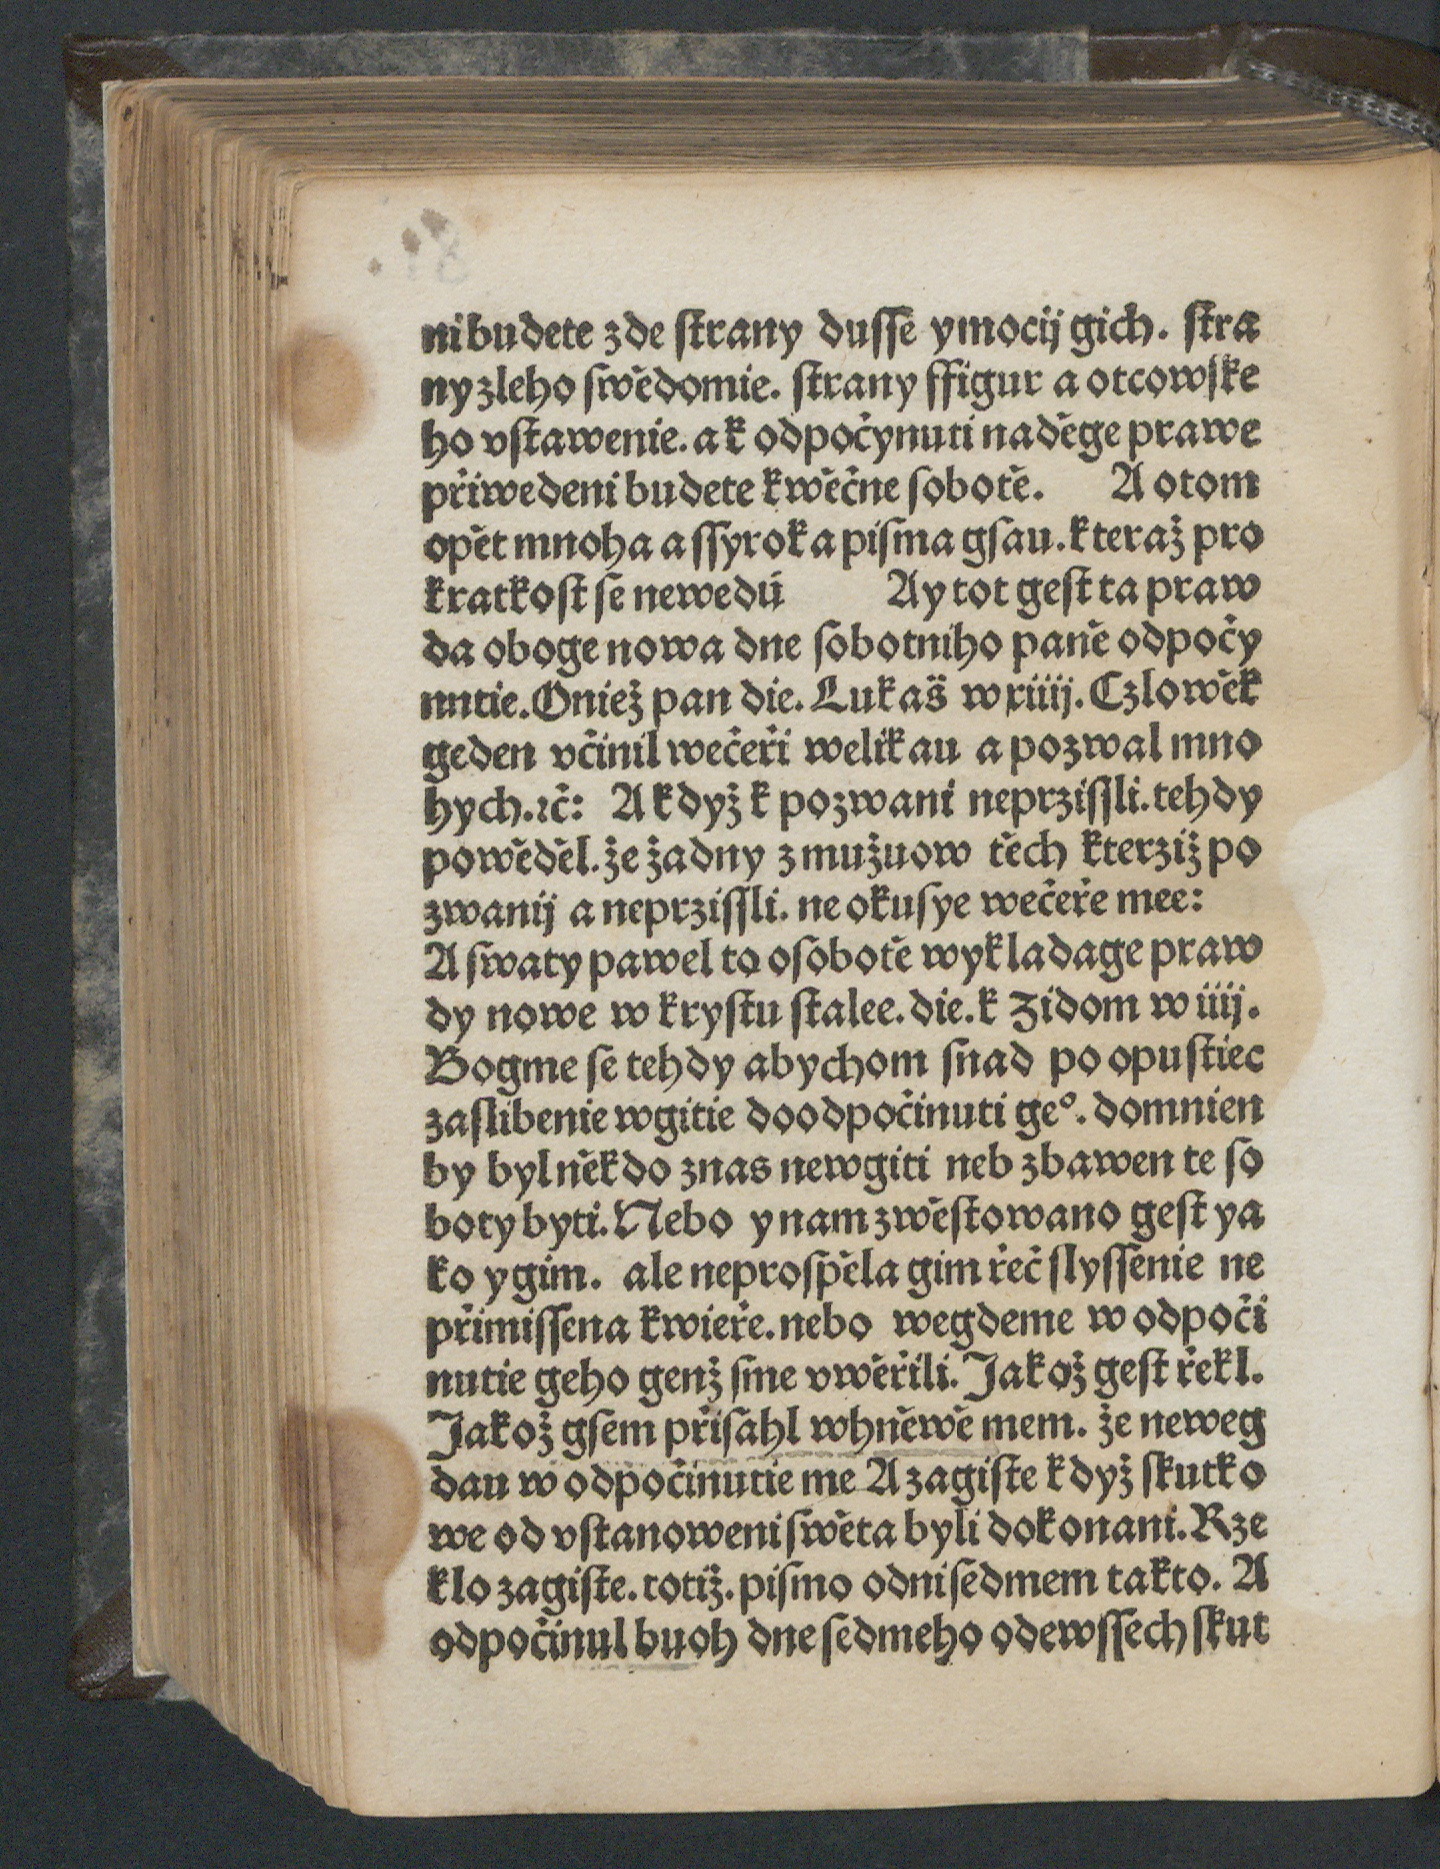 ni budete zde ſtrany duſſe y mocij gich. ſtra
ny zleho ſwědomie. ſtrany ffigur a otcowſke
ho vſtawenie. a k odpočynuti naděge prawe
přiwedeni budete k wěčne ſobotě. A o tom
opět mnoha a ſſyroka piſma gſau. kteraž pro
kratkoſt ſe newedú Ay tot geſt ta praw
da oboge nowa dne ſobotniho paně odpočy
nutie. O niež pan die. Lukaš w xiiij. Czlowěk
geden včinil wečeři welikau a pozwal mno
hych. ꝛč: A když k pozwani neprziſſli. tehdy
powěděl. že žadny z mužuow těch kterziž po
zwanij a neprziſſli. ne okuſye wečeře mee:
A ſwaty pawel to o ſobotě wykladage praw
dy nowe w kryſtu ſtalee. die. k Zidom w iiij.
Bogme ſe tehdy abychom ſnad po opuſtiec
zaſlibenie wgitie do odpočinuti geº. domnien
by byl někdo z nas newgiti neb zbawen te ſo
boty byti. Nebo y nam zwěſtowano geſt ya
ko y gim. ale neproſpěla gim řeč ſlyſſenie ne
přimiſſena k wieře. nebo wegdeme w odpoči
nutie geho genž ſme vwěřili. Jakož geſt řekl.
Jakož gſem přiſahl w hněwě mem. že neweg
dau w odpočinutie me A zagiſte když ſkutko
we od vſtanoweni ſwěta byli dokonani. Rze
klo zagiſte. totiž. piſmo o dni ſedmem takto. A
odpočinul buoh dne ſedmeho ode wſſech ſkut